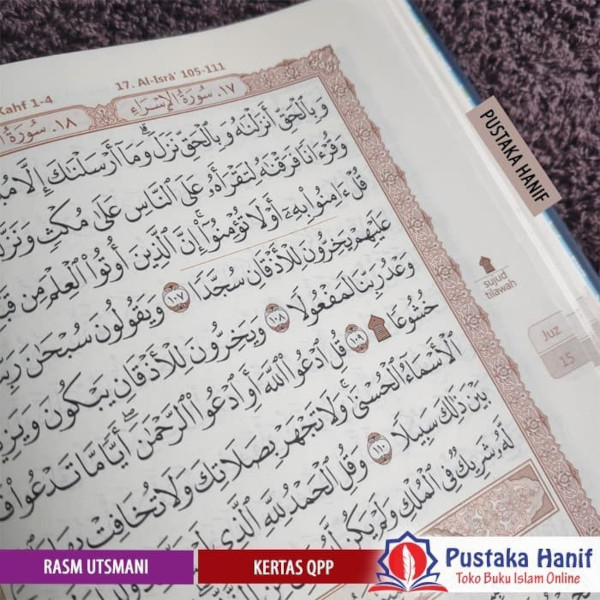 Kahf 1-4
17. Al-Isrā' 105-111
١٧. سُورَةُ الْإِسْرَاءِ
١٨. سُورَةُ
وَبِالْحَقِّ أَنزَلْنَٰهُ وَبِالْحَقِّ نَزَلَ ۗ وَمَآ أَرْسَلْنَٰكَ إِلَّا
وَقُرْءَانًا فَرَقْنَٰهُ لِتَقْرَأَهُۥ عَلَى النَّاسِ عَلَىٰ مُكْثٍ
قُلْ ءَامِنُوا۟ بِهِۦٓ أَوْ لَا تُؤْمِنُوٓا۟ ۚ إِنَّ الَّذِينَ أُوتُوا۟ الْعِلْمَ مِن
عَلَيْهِمْ يَخِرُّونَ لِلْأَذْقَانِ سُجَّدًا ١٠٧ وَيَقُولُونَ سُبْحَٰنَ
وَعْدُ رَبِّنَا لَمَفْعُولًا ١٠٨ وَيَخِرُّونَ لِلْأَذْقَانِ يَبْكُونَ
خُشُوعًا ۩ ١٠٩ قُلِ ادْعُوا۟ اللَّهَ أَوِ ادْعُوا۟ الرَّحْمَٰنَ ۖ أَيًّا مَّا تَدْعُوا۟
الْأَسْمَآءُ الْحُسْنَىٰ ۚ وَلَا تَجْهَرْ بِصَلَاتِكَ وَلَا تُخَافِتْ
بَيْنَ ذَٰلِكَ سَبِيلًا ١١٠ وَقُلِ الْحَمْدُ لِلَّهِ الَّذِى
لَّهُۥ شَرِيكٌ فِى الْمُلْكِ وَلَمْ يَكُن
PUSTAKA HANIF
sujud
tilawah
Juz
15
RASM UTSMANI
KERTAS QPP
Pustaka Hanif
Toko Buku Islam Online